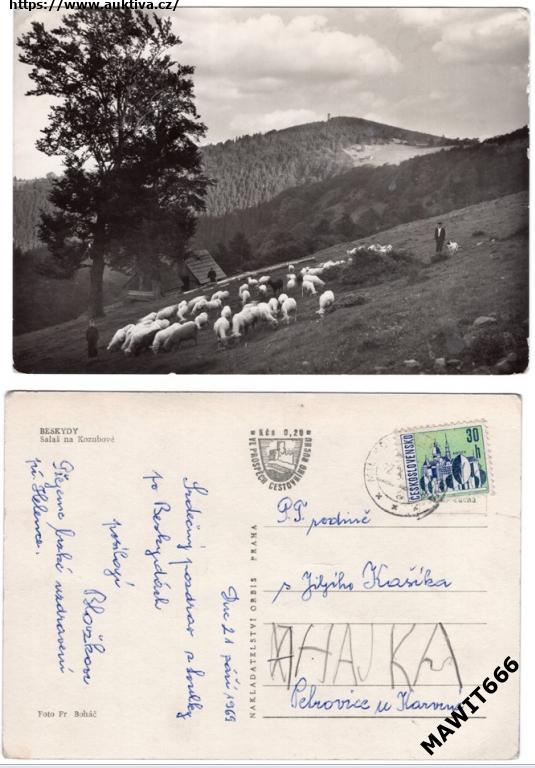 https://www.auktiva.cz/
BESKYDY
Salaš na Kozubové
Kčs 0,20
VE PROSPĚCH CESTOVNÍHO RUCHU
ČESKOSLOVENSKO
30
h
Dne 21 září 1969
Srdečný pozdrav z toulky
po Beskydách
posílají
Přejeme brzké uzdravení
pí. Helence.
NAKLADATELSTVÍ ORBIS PRAHA
P.T. rodina
p. Jiljího Kašíka
HAJKA
Petrovice u Karviné
Foto Fr. Boháč
MAWIT666